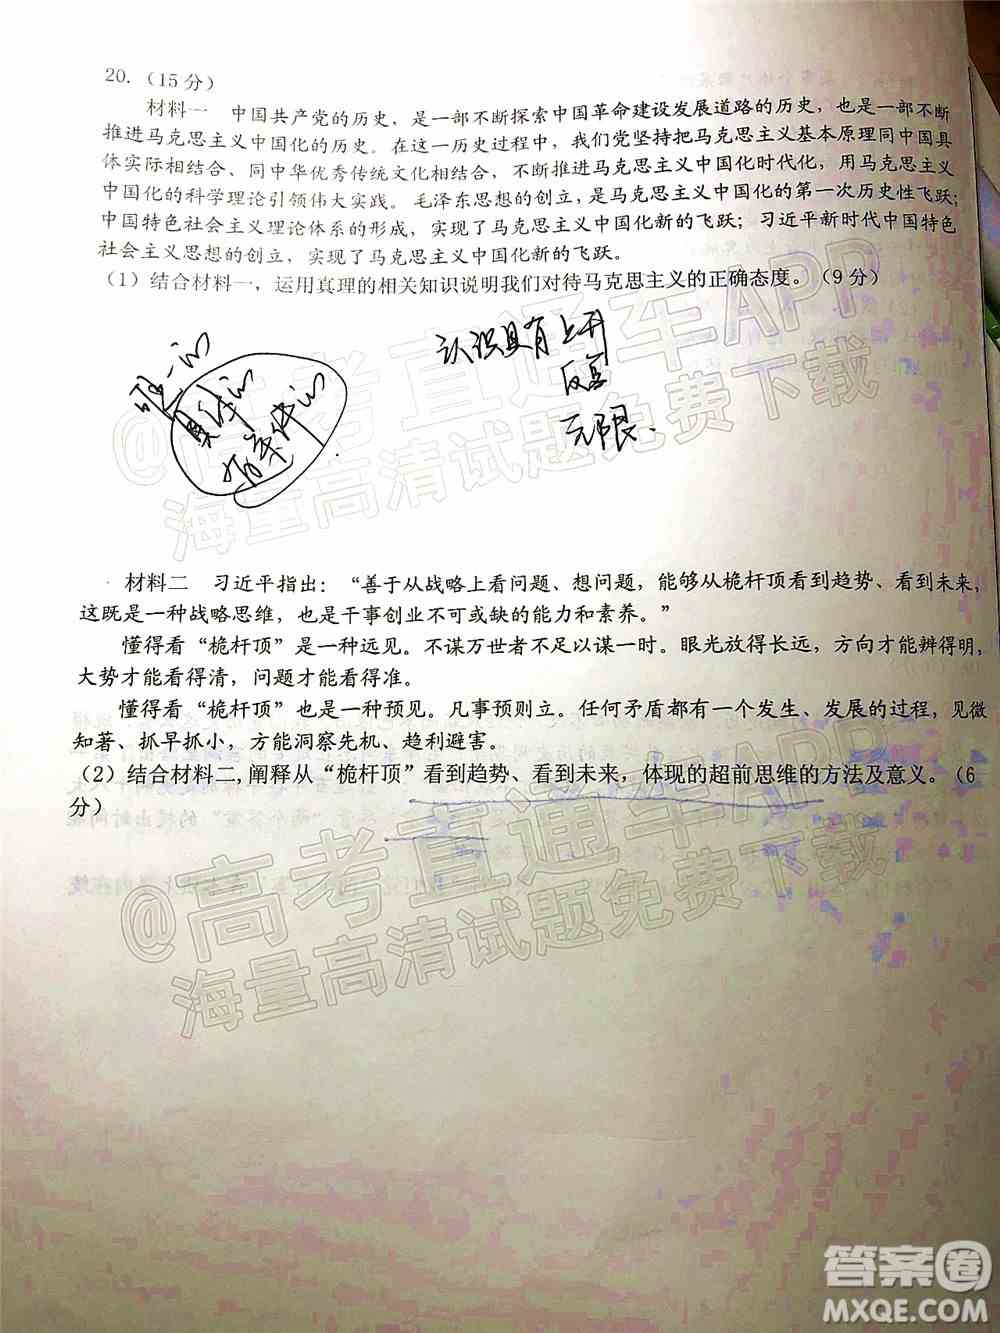 20.（15分）
材料一 中国共产党的历史，是一部不断探索中国革命建设发展道路的历史，也是一部不断
推进马克思主义中国化的历史。在这一历史过程中，我们党坚持把马克思主义基本原理同中国具
体实际相结合、同中华优秀传统文化相结合，不断推进马克思主义中国化时代化，用马克思主义
中国化的科学理论引领伟大实践。毛泽东思想的创立，是马克思主义中国化的第一次历史性飞跃；
中国特色社会主义理论体系的形成，实现了马克思主义中国化新的飞跃；习近平新时代中国特色
社会主义思想的创立，实现了马克思主义中国化新的飞跃。
（1）结合材料一，运用真理的相关知识说明我们对待马克思主义的正确态度。（9分）
唯一的
具体的
有条件的
认识具有上升
反复
无限.
@高考直通车APP
海量高清试题免费下载
材料二 习近平指出：“善于从战略上看问题、想问题，能够从桅杆顶看到趋势、看到未来，
这既是一种战略思维，也是干事创业不可或缺的能力和素养。”
懂得看“桅杆顶”是一种远见。不谋万世者不足以谋一时。眼光放得长远，方向才能辨得明，
大势才能看得清，问题才能看得准。
懂得看“桅杆顶”也是一种预见。凡事预则立。任何矛盾都有一个发生、发展的过程，见微
知著、抓早抓小，方能洞察先机、趋利避害。
（2）结合材料二，阐释从“桅杆顶”看到趋势、看到未来，体现的超前思维的方法及意义。（6
分）
@高考直通车APP
海量高清试题免费下载
答案圈
MXQE.COM